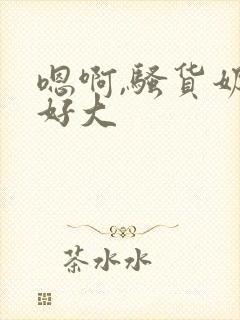 嗯啊,骚货奶
好大
茶水水